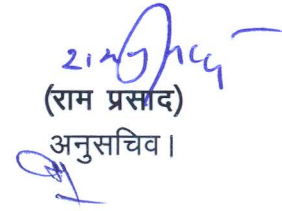 (राम प्रसाद)
अनुसचिव।